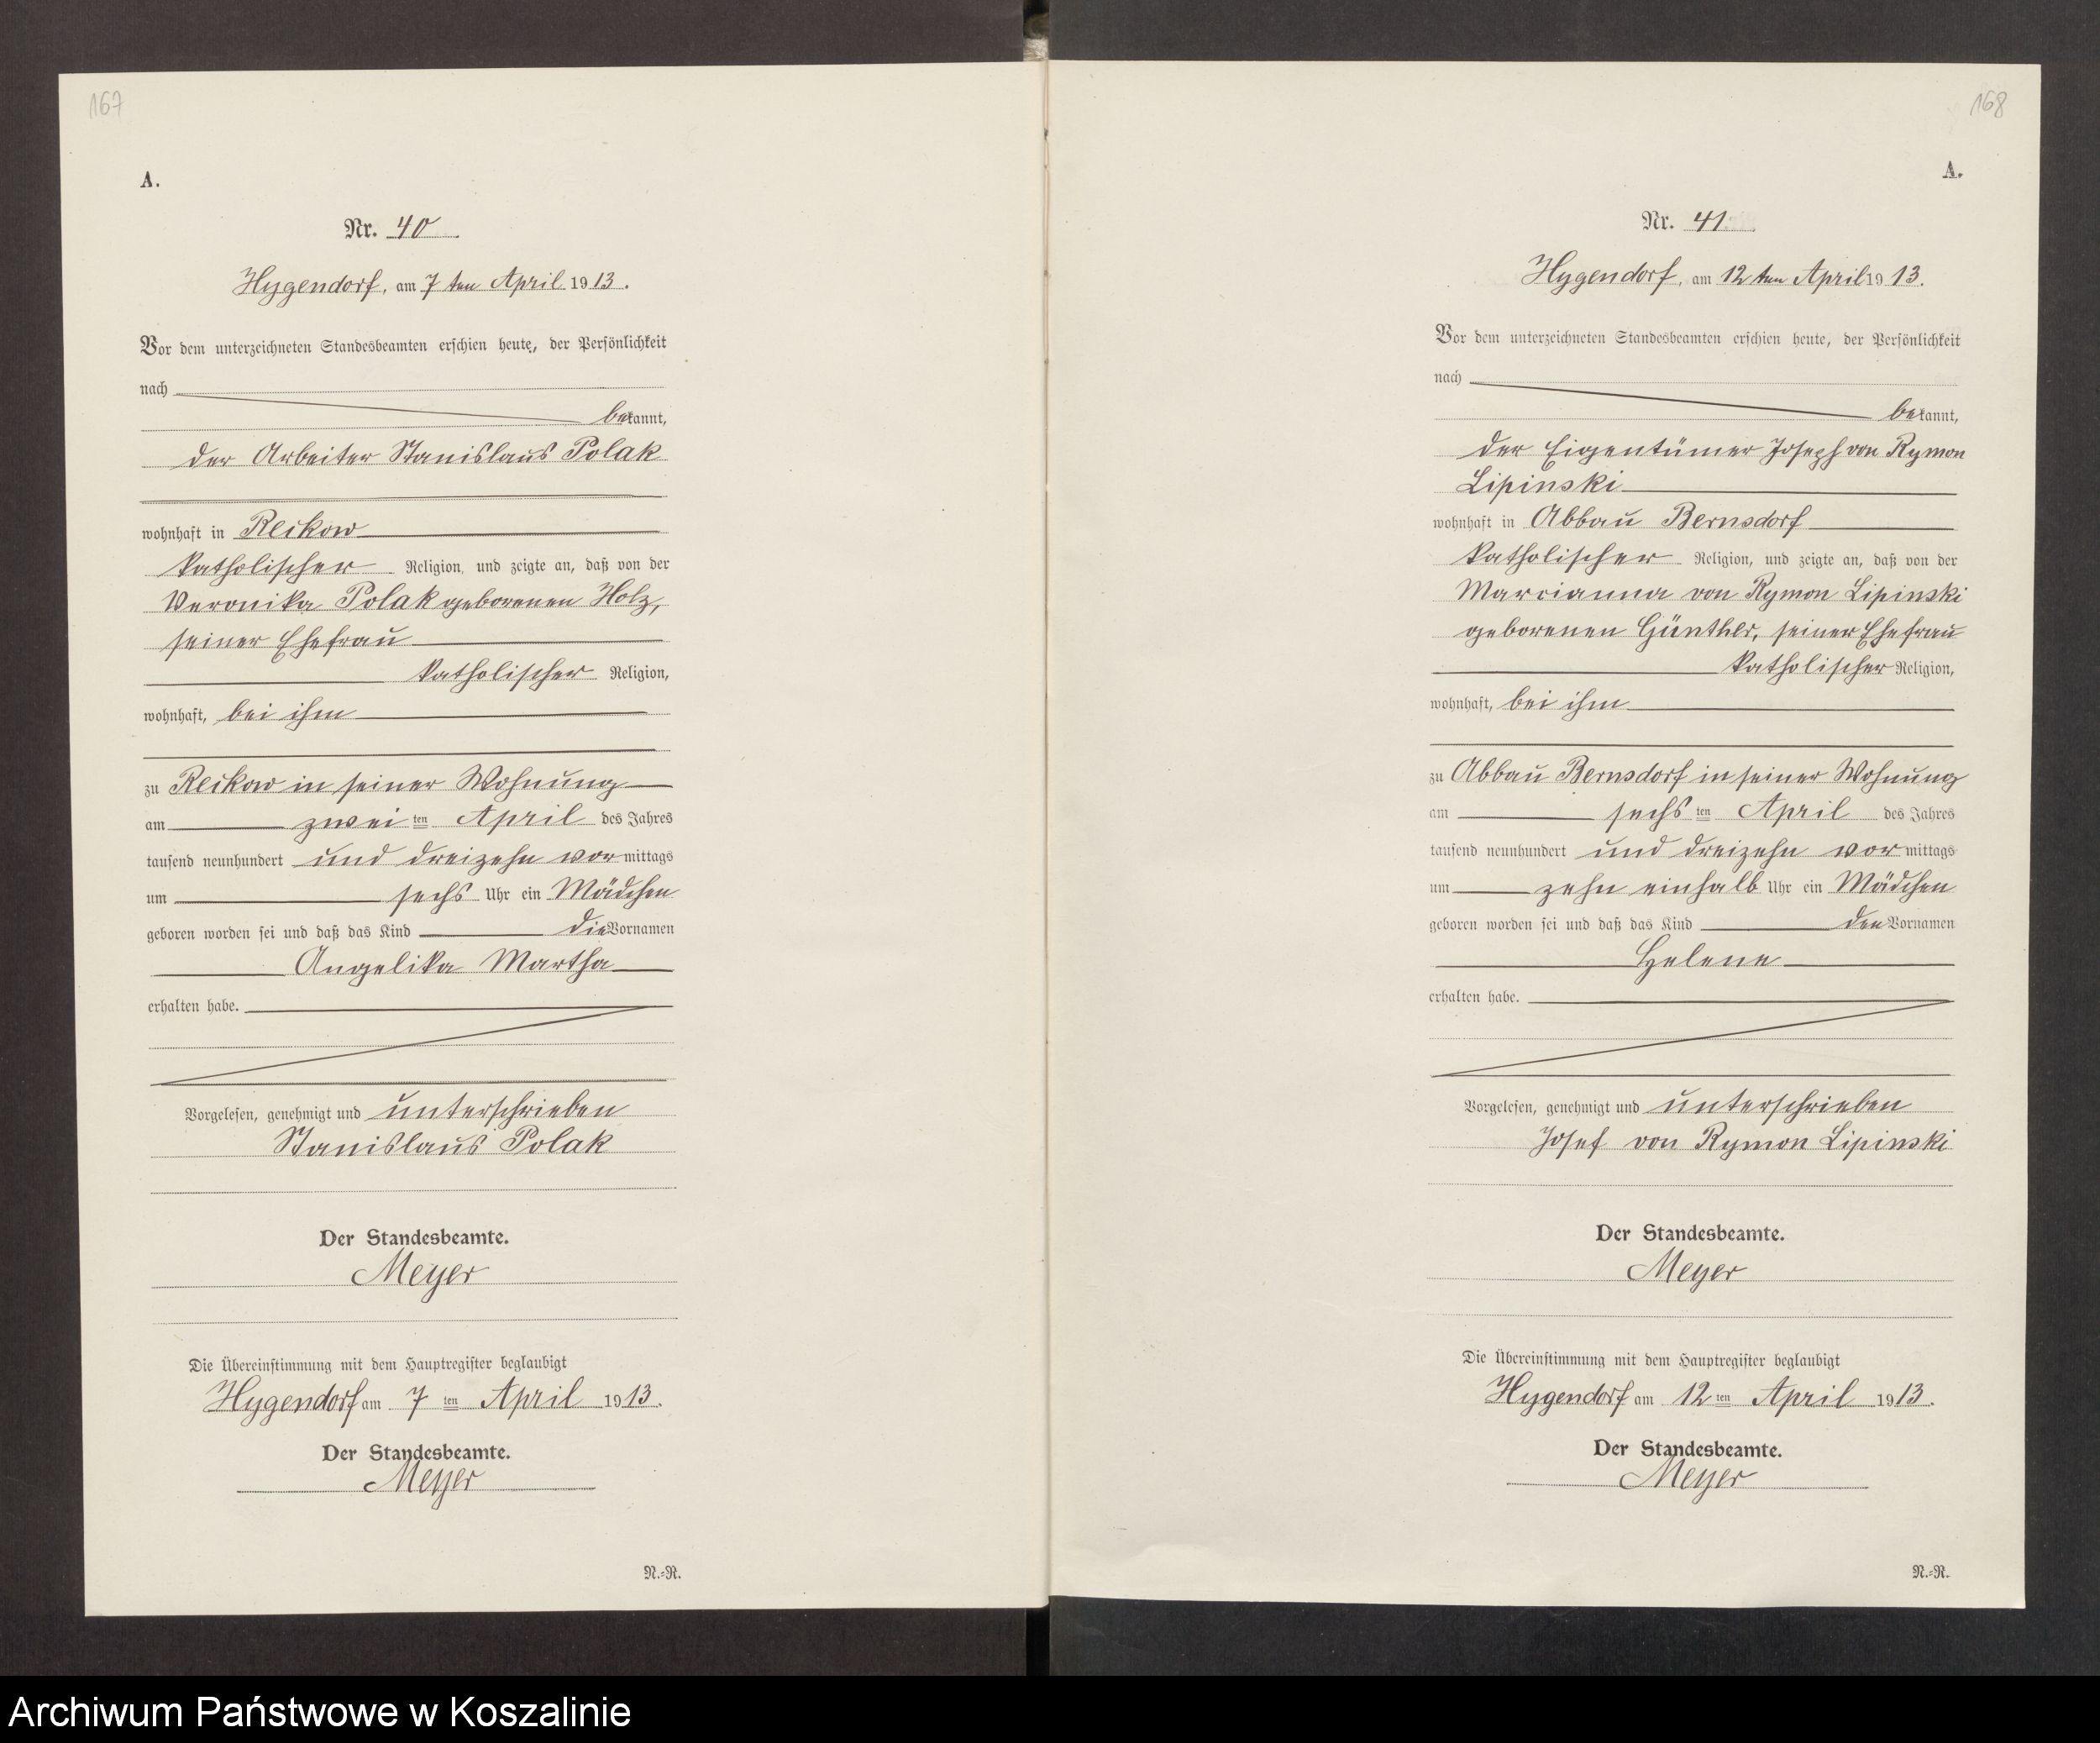 167
A.
Nr. 40
Hygendorf, am 7 ten April 1913.
Vor dem unterzeichneten Standesbeamten erschien heute, der Persönlichkeit
nach
bekannt,
der Arbeiter Stanislaus Polak
wohnhaft in Reikow
katholischer Religion, und zeigte an, daß von der
Veronika Polak geborenen Holz,
seiner Ehefrau
katholischer Religion,
wohnhaft, bei ihm
zu Reikow in seiner Wohnung
am zwei ten April des Jahres
tausend neunhundert und dreizehn vormittags
um sechs Uhr ein Mädchen
geboren worden sei und daß das Kind die Vornamen
Angelika Martha
erhalten habe.
Vorgelesen, genehmigt und unterschrieben
Stanislaus Polak
Der Standesbeamte.
Meyer
Die Übereinstimmung mit dem Hauptregister beglaubigt
Hygendorf am 7 ten April 1913.
Der Standesbeamte.
Meyer
N.=R.
168
A.
Nr. 41.
Hygendorf, am 12 ten April 1913.
Vor dem unterzeichneten Standesbeamten erschien heute, der Persönlichkeit
nach
bekannt,
der Eigentümer Joseph von Rymon
Lipinski
wohnhaft in Abbau Bernsdorf
katholischer Religion, und zeigte an, daß von der
Marcianna von Rymon Lipinski
geborenen Günther, seiner Ehefrau
katholischer Religion,
wohnhaft, bei ihm
zu Abbau Bernsdorf in seiner Wohnung
am sechs ten April des Jahres
tausend neunhundert und dreizehn vormittags
um zehn einhalb Uhr ein Mädchen
geboren worden sei und daß das Kind den Vornamen
Helene
erhalten habe.
Vorgelesen, genehmigt und unterschrieben
Josef von Rymon Lipinski
Der Standesbeamte.
Meyer
Die Übereinstimmung mit dem Hauptregister beglaubigt
Hygendorf am 12 ten April 1913.
Der Standesbeamte.
Meyer
N.=R.
Archiwum Państwowe w Koszalinie